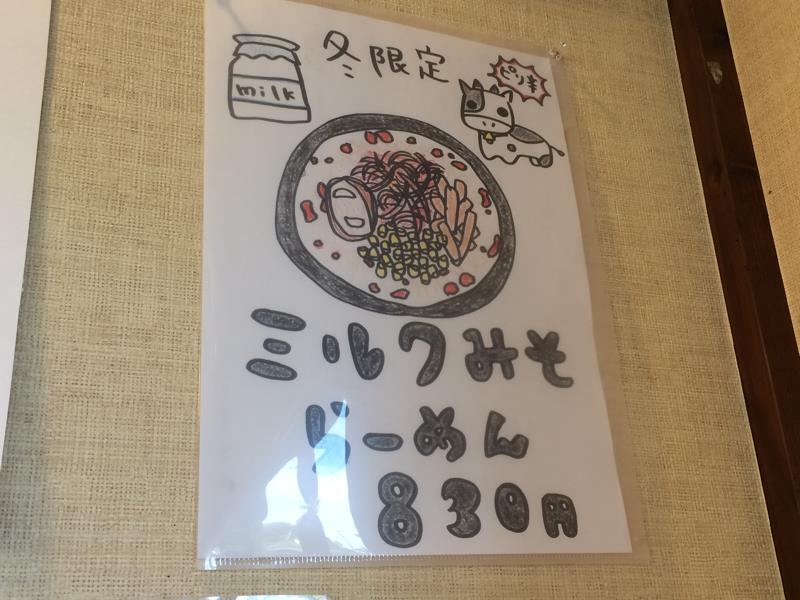 冬限定
milk
ピリ辛
ミルクみそ
らーめん
830円